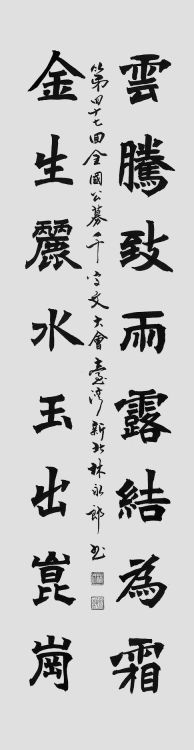 雲騰致雨露結為霜
金生麗水玉出崑崗
第四十七回全國公募千字文大會臺灣新北林永郎書